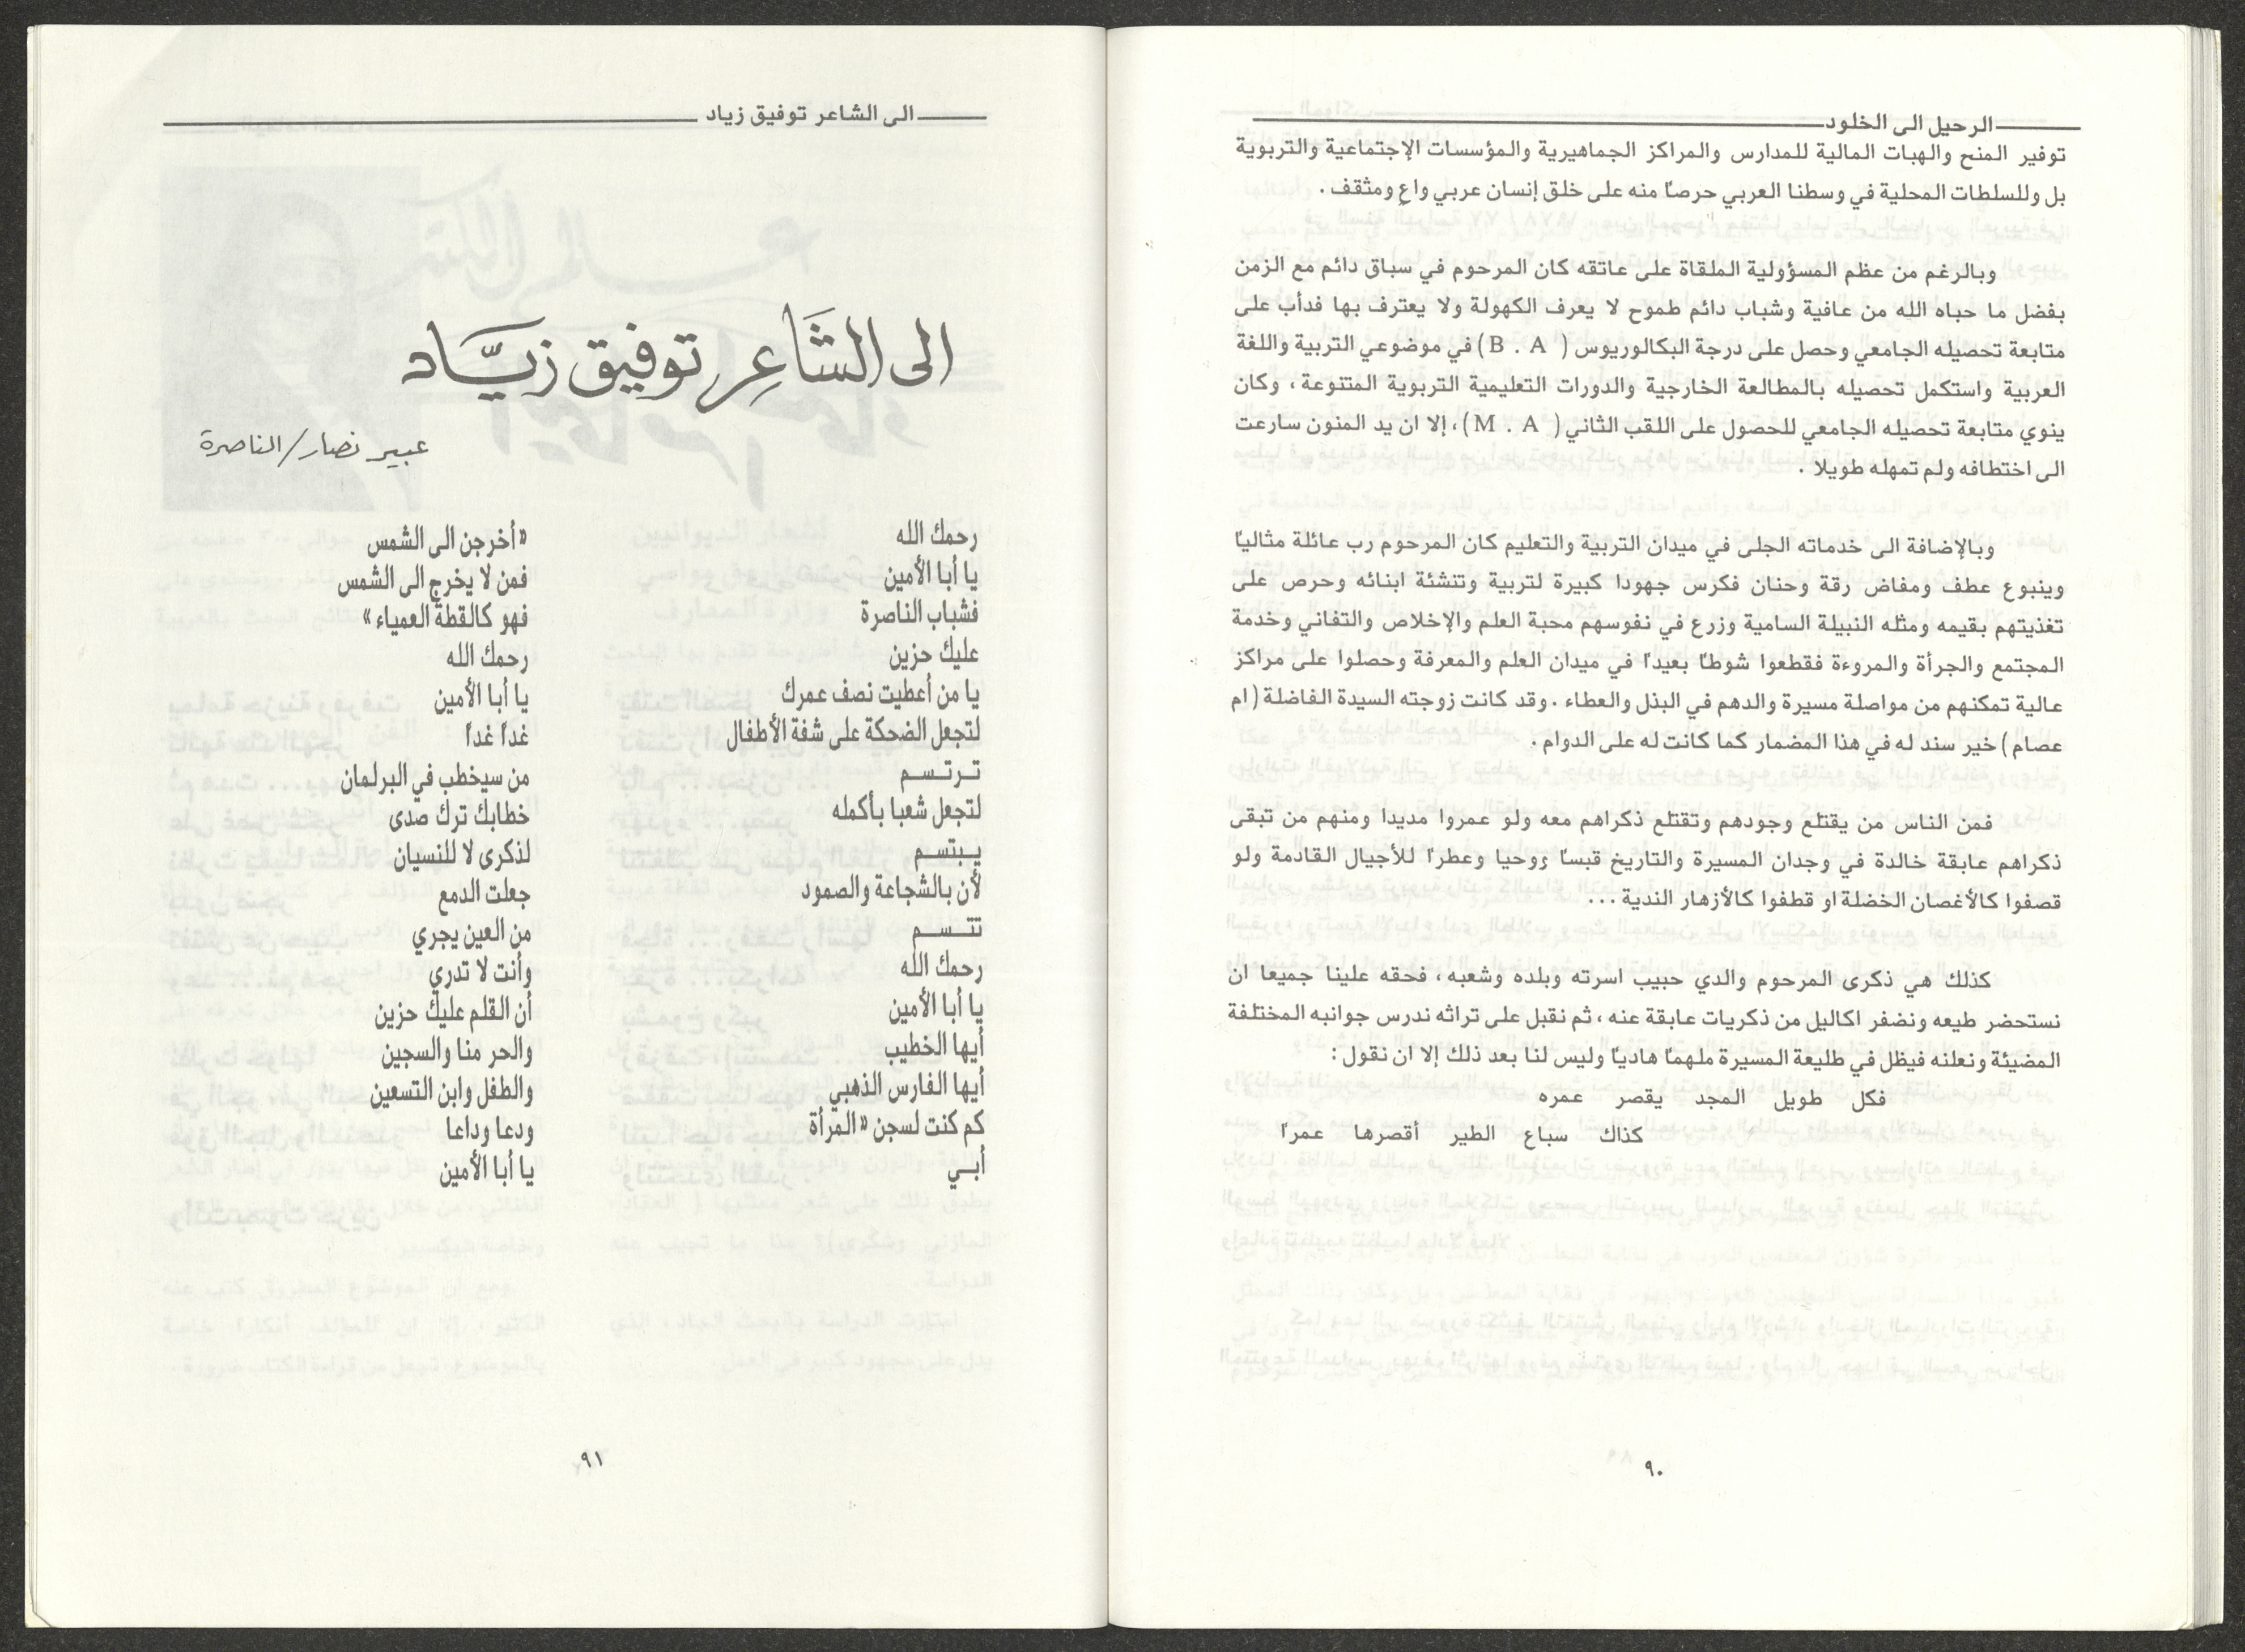 الرحيل الى الخلود
توفير المنح والهبات المالية للمدارس والمراكز الجماهيرية والمؤسسات الإجتماعية والتربوية
بل وللسلطات المحلية في وسطنا العربي حرصًا منه على خلق إنسان عربي واعٍ ومثقف .
وبالرغم من عظم المسؤولية الملقاة على عاتقه كان المرحوم في سباق دائم مع الزمن
بفضل ما حباه الله من عافية وشباب دائم طموح لا يعرف الكهولة ولا يعترف بها فدأب على
متابعة تحصيله الجامعي وحصل على درجة البكالوريوس ( B . A ) في موضوعي التربية واللغة
العربية واستكمل تحصيله بالمطالعة الخارجية والدورات التعليمية التربوية المتنوعة ، وكان
ينوي متابعة تحصيله الجامعي للحصول على اللقب الثاني ( M . A ) ، إلا ان يد المنون سارعت
الى اختطافه ولم تمهله طويلا .
وبالإضافة الى خدماته الجلى في ميدان التربية والتعليم كان المرحوم رب عائلة مثاليًا
وينبوع عطف ومفاض رقة وحنان فكرس جهودا كبيرة لتربية وتنشئة ابنائه وحرص على
تغذيتهم بقيمه ومثله النبيلة السامية وزرع في نفوسهم محبة العلم والإخلاص والتفاني وخدمة
المجتمع والجرأة والمروءة فقطعوا شوطًا بعيدًا في ميدان العلم والمعرفة وحصلوا على مراكز
عالية تمكنهم من مواصلة مسيرة والدهم في البذل والعطاء . وقد كانت زوجته السيدة الفاضلة ( ام
عصام ) خير سند له في هذا المضمار كما كانت له على الدوام .
فمن الناس من يقتلع وجودهم وتقتلع ذكراهم معه ولو عمروا مديدا ومنهم من تبقى
ذكراهم عابقة خالدة في وجدان المسيرة والتاريخ قبسًا ووحيا وعطرًا للأجيال القادمة ولو
قصفوا كالأغصان الخضلة او قطفوا كالأزهار الندية ...
كذلك هي ذكرى المرحوم والدي حبيب اسرته وبلده وشعبه ، فحقه علينا جميعا ان
نستحضر طيعه ونضفر اكاليل من ذكريات عابقة عنه ، ثم نقبل على تراثه ندرس جوانبه المختلفة
المضيئة ونعلنه فيظل في طليعة المسيرة ملهمًا هاديًا وليس لنا بعد ذلك إلا ان نقول :
فكل طويل المجد يقصر عمره
كذاك سباع الطير أقصرها عمرًا
٩٠
الى الشاعر توفيق زياد
الى الشَاعِر توفيق زيَّاد
عبير نصار/الناصرة
رحمك الله
يا أبا الأمين
فشباب الناصرة
عليك حزين
يا من أعطيت نصف عمرك
لتجعل الضحكة على شفة الأطفال
تـرتـسـم
لتجعل شعبا بأكمله
يـبتسـم
لأن بالشجاعة والصمود
تتـسـم
رحمك الله
يا أبا الأمين
أيها الخطيب
أيها الفارس الذهبي
كم كنت لسجن « المرأة
أبـي
« أخرجن الى الشمس
فمن لا يخرج الى الشمس
فهو كالقطة العمياء »
رحمك الله
يا أبا الأمين
غدًا غدًا
من سيخطب في البرلمان
خطابك ترك صدى
لذكرى لا للنسيان
جعلت الدمع
من العين يجري
وأنت لا تدري
أن القلم عليك حزين
والحر منا والسجين
والطفل وابن التسعين
ودعا وداعا
يا أبا الأمين
٩١